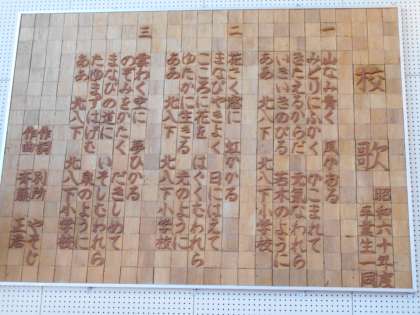 校歌
昭和六十年度
卒業生一同
一
山なみ青く 風かおる
みどりにふかく かこまれて
きたえるからだ 元気なわれら
いきいきのびる 若木のように
ああ 北八下小学校
二
花さく窓に 虹かかる
まなびやきよく 日にはえて
こころに花を はぐくむわれら
ゆたかに生きる 光のように
ああ 北八下小学校
三
雲わく空に 夢ひかる
のぞみをかたく だきしめて
まなびの道に いそしむわれら
たゆまずはげむ 泉のように
ああ 北八下小学校
作詞 別所 やそじ
作曲 斉藤